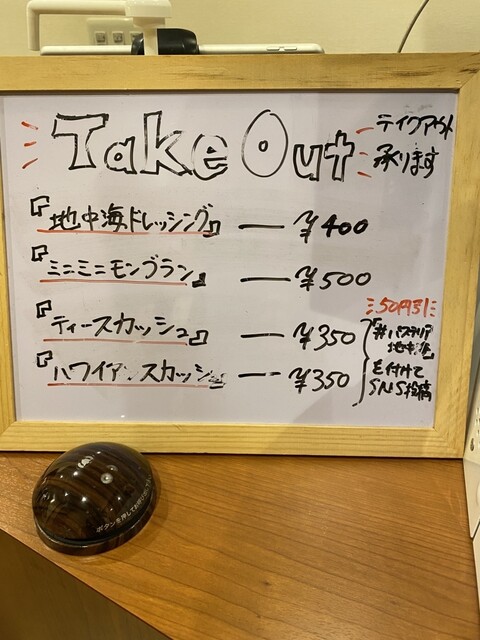 Take Out
テイクアウト
承ります
『地中海ドレッシング』 — ¥400
『ミニミニモンブラン』 — ¥500
『ティースカッシュ』 — ¥350
『ハワイアンスカッシュ』 — ¥350
50円引
『#パステリア
地中海』
を付けて
SNS投稿